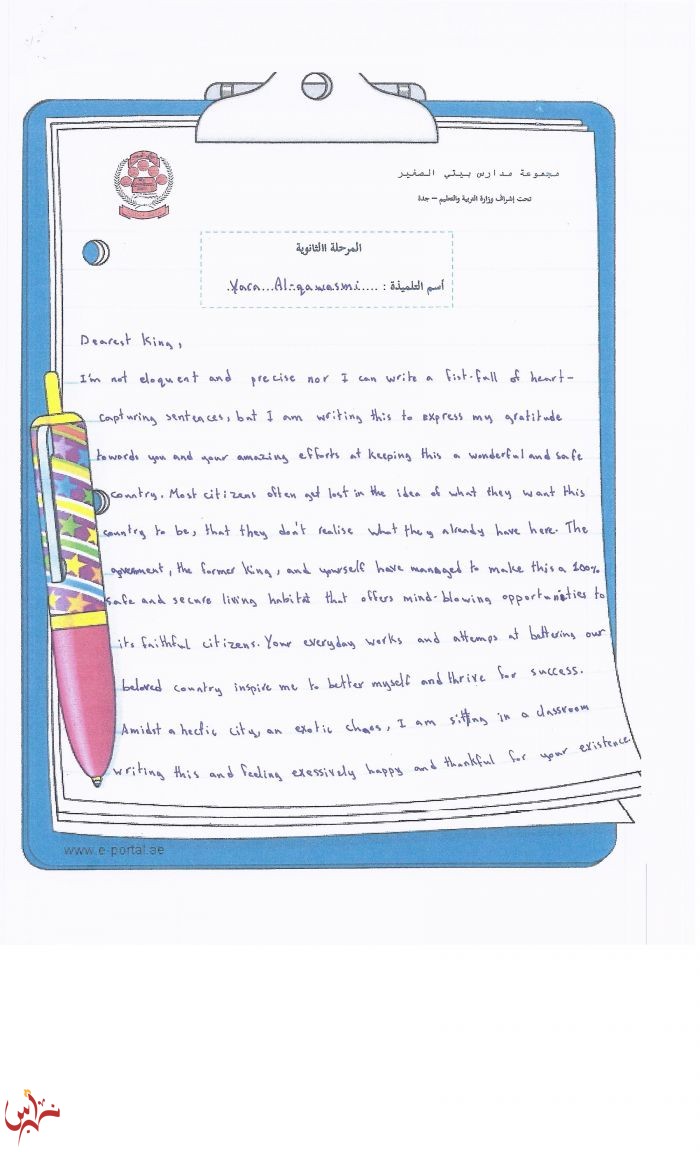 مجموعة مدارس بيتي الصغير
تحت إشراف وزارة التربية والتعليم – جدة
المرحلة االثانوية
أسم التلميذة : ....Yara...Al-qawasmi.
Dearest King,
I'm not eloquent and precise nor I can write a fist-full of heart-
capturing sentences, but I am writing this to express my gratitude
towards you and your amazing efforts at keeping this a wonderful and safe
country. Most citizens often get lost in the idea of what they want this
country to be, that they don't realise what they already have here. The
government, the former King, and yourself have managed to make this a 100%
safe and secure living habitat that offers mind-blowing opportunities to
its faithful citizens. Your everyday works and attemps at bettering our
beloved country inspire me to better myself and thrive for success.
Amidst a hectic city, an exotic chaos, I am sitting in a classroom
writing this and feeling exessively happy and thankful for your existence.
www.e-portal.ae